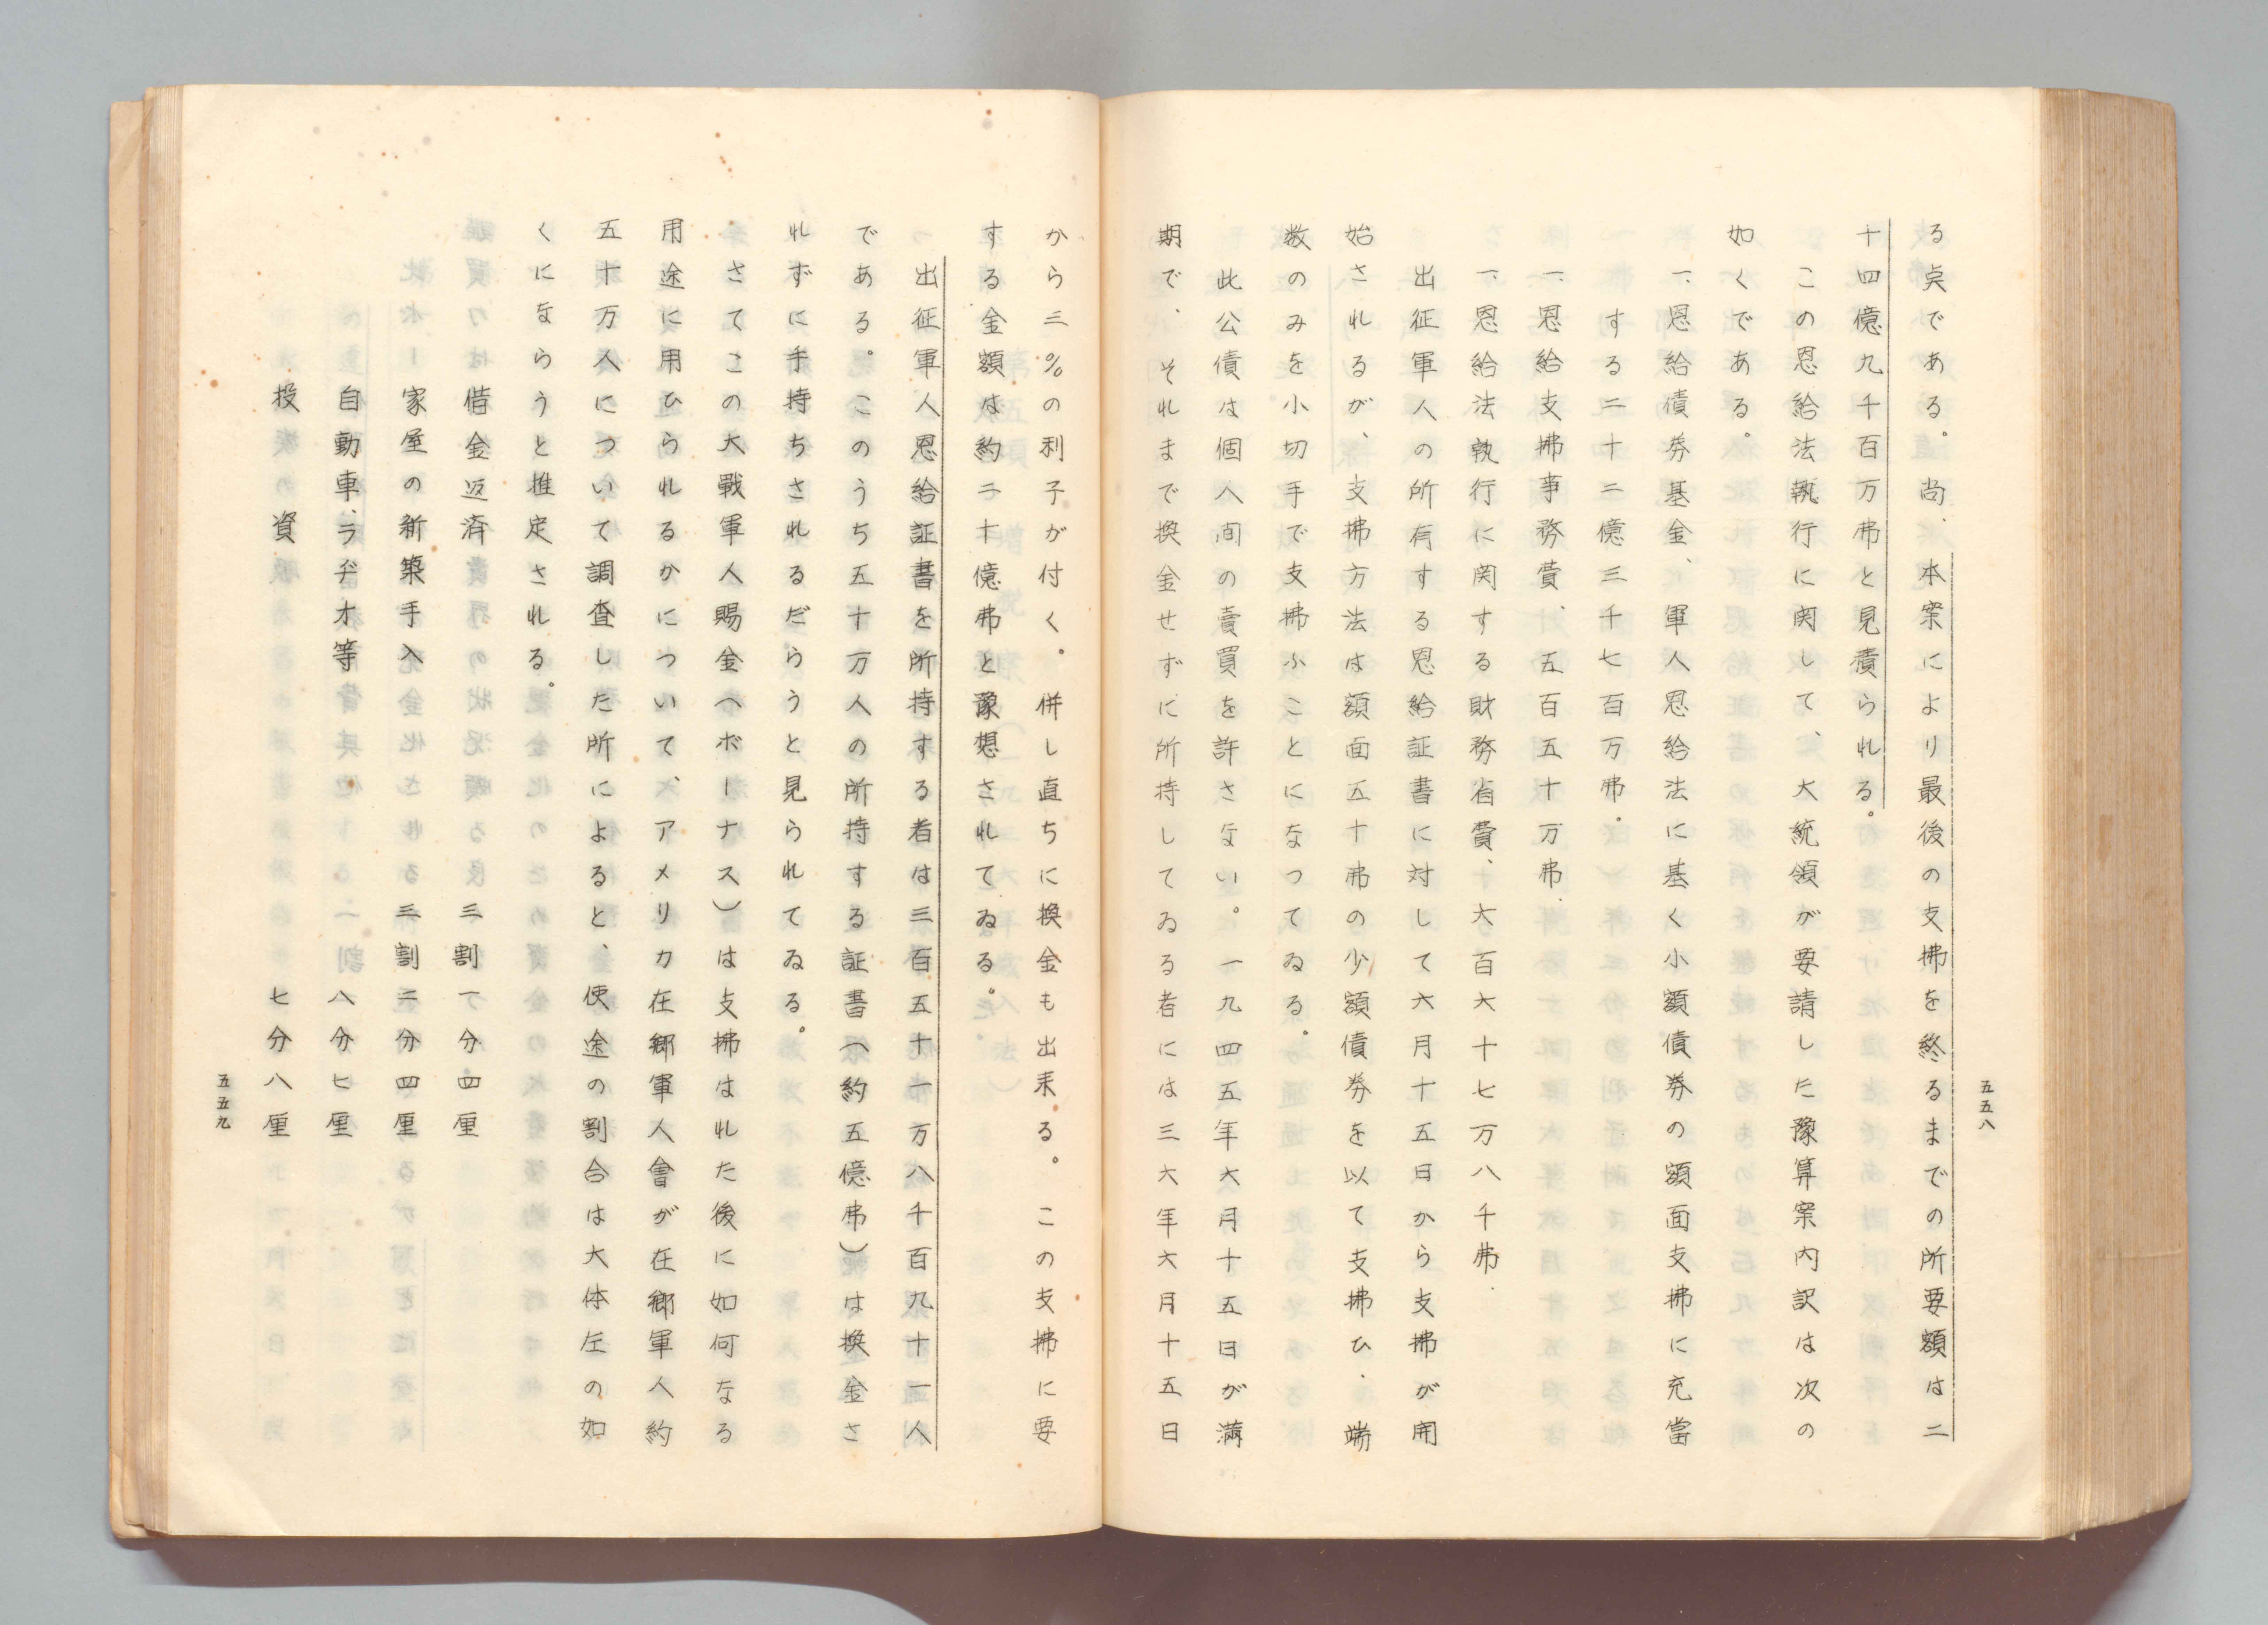 五五八
る点である。尚、本案により最後の支拂を終るまでの所要額は二
十四億九千百万弗と見積られる。
この恩給法執行に関して、大統領が要請した豫算案内訳は次の
如くである。
一、恩給債券基金、軍人恩給法に基く小額債券の額面支拂に充當
する二十二億三千七百万弗．
一、恩給支拂事務費、五百五十万弗．
一、恩給法執行に関する財務省費、六百六十七万八千弗．
出征軍人の所有する恩給証書に対して六月十五日から支拂が開
始されるが、支拂方法は額面五十弗の少額債券を以て支拂ひ、端
数のみを小切手で支拂ふことになつてゐる。
此公債は個人間の賣買を許さない。一九四五年六月十五日が満
期で、それまで換金せずに所持してゐる者には三六年六月十五日
から三％の利子が付く。併し直ちに換金も出来る。この支拂に要
する金額は約二十億弗と豫想されてゐる。
出征軍人恩給証書を所持する者は三百五十一万八千百九十一人
である。このうち五十万人の所持する証書（約五億弗）は換金さ
れずに手持ちされるだらうと見られてゐる。
さてこの大戰軍人賜金（ボーナス）は支拂はれた後に如何なる
用途に用ひられるかについて、アメリカ在郷軍人會が在郷軍人約
五十万人について調査した所によると、使途の割合は大体左の如
くにならうと推定される。
借金返済　三割一分四厘
家屋の新築手入　三割二分四厘
自動車、ラヂオ等　八分七厘
投資　七分八厘
五五九